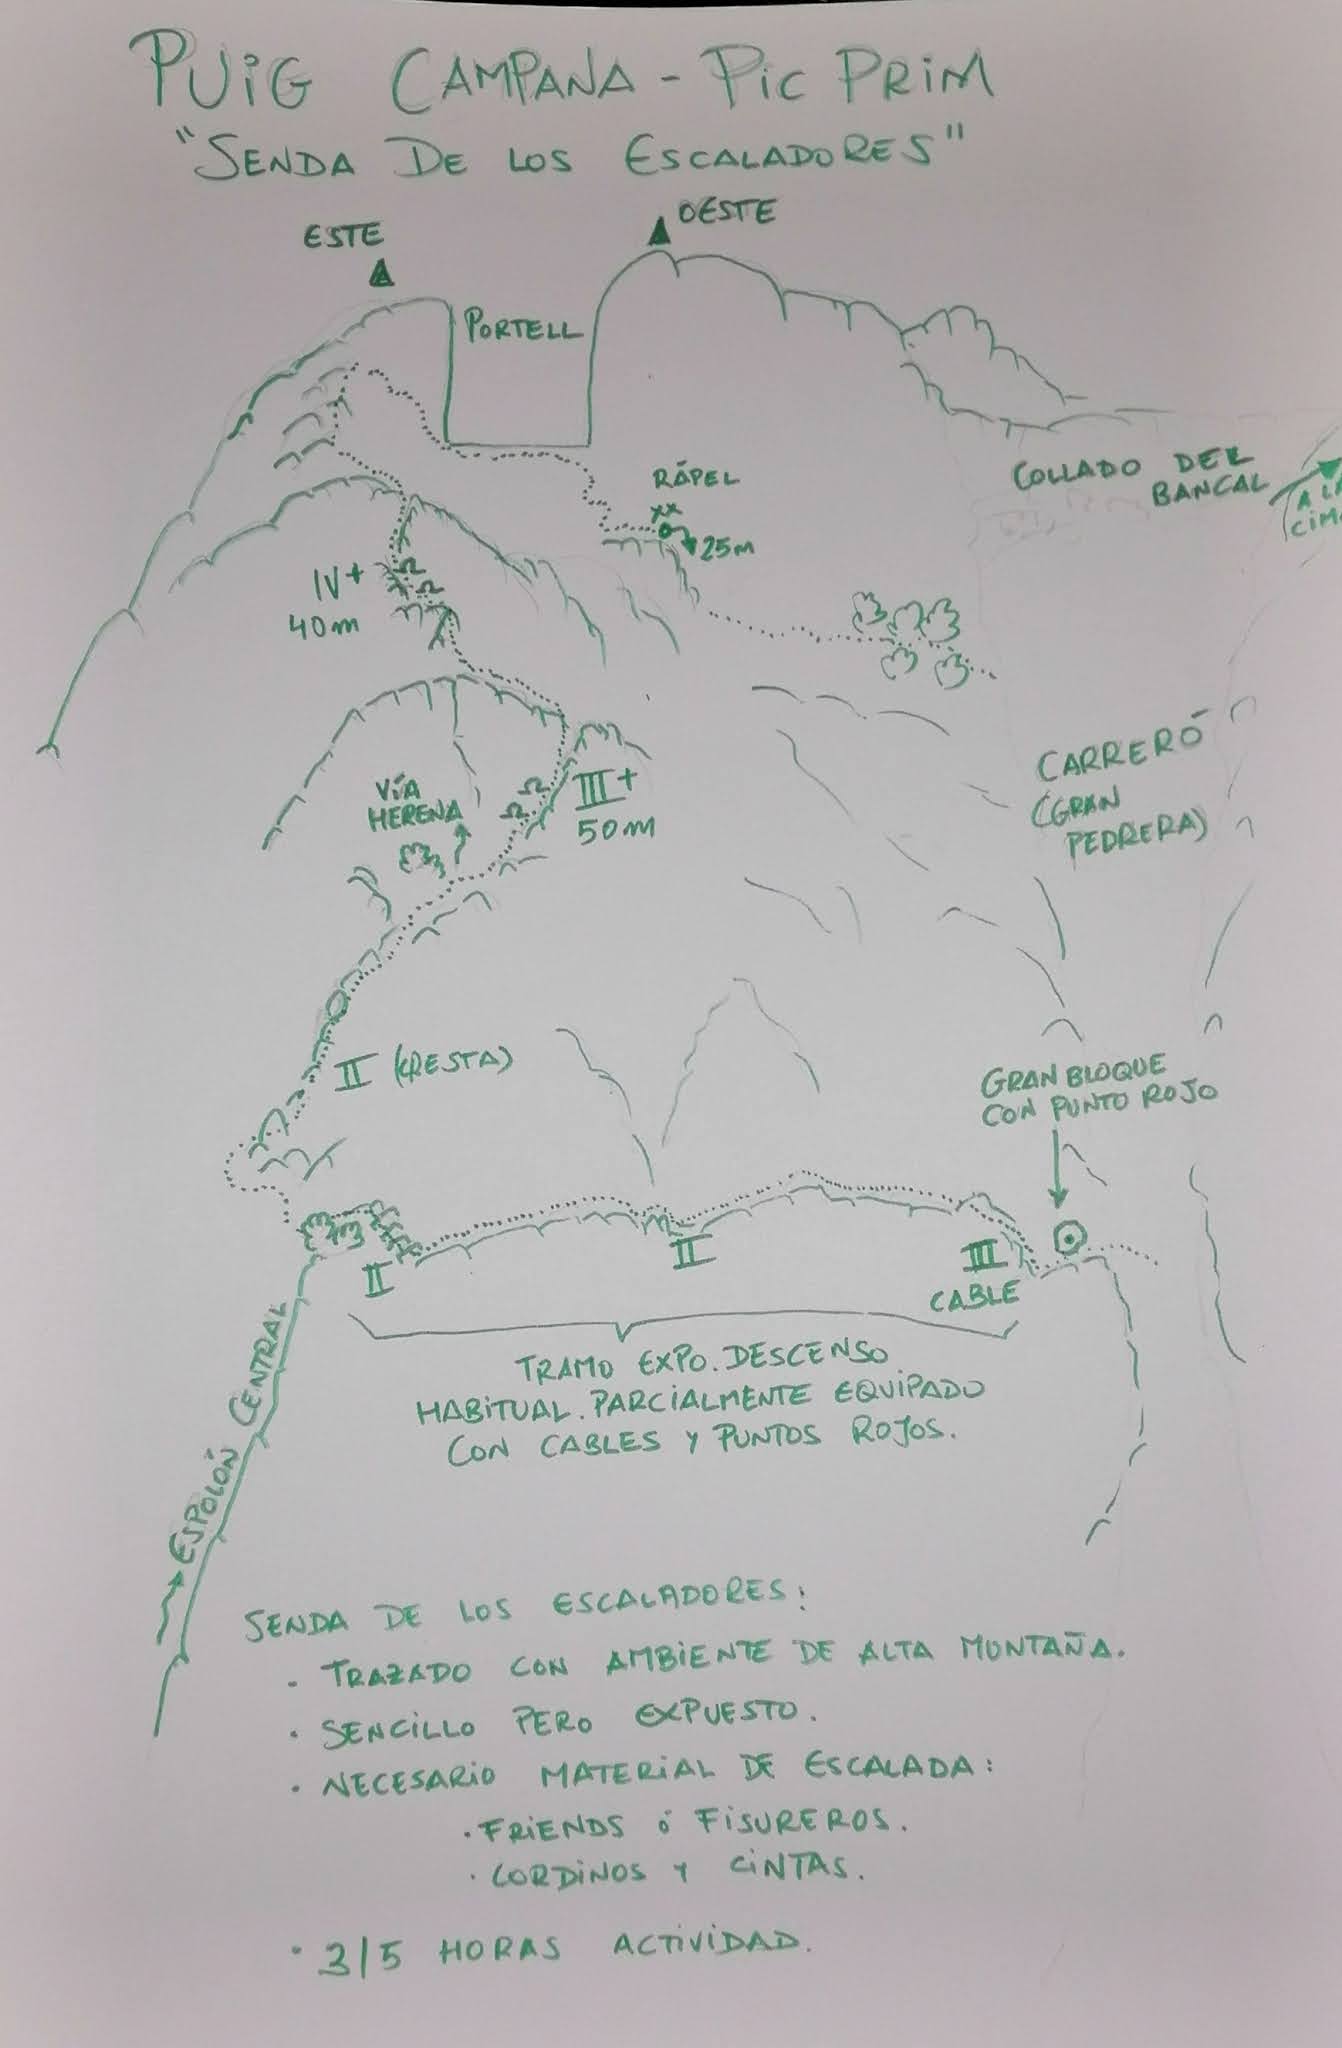 PUIG CAMPANA - PIC PRIM
"SENDA DE LOS ESCALADORES"
ESTE
OESTE
PORTELL
RÁPEL
XX
25m
COLLADO DEL
BANCAL
A LA
CIMA
IV+
40m
VÍA
HERENA
III+
50m
CARRERÓ
(GRAN
PEDRERA)
II (CRESTA)
GRAN BLOQUE
CON PUNTO ROJO
II
II
III
CABLE
TRAMO EXPO. DESCENSO
HABITUAL. PARCIALMENTE EQUIPADO
CON CABLES Y PUNTOS ROJOS.
ESPOLÓN CENTRAL
SENDA DE LOS ESCALADORES:
· TRAZADO CON AMBIENTE DE ALTA MONTAÑA.
· SENCILLO PERO EXPUESTO.
· NECESARIO MATERIAL DE ESCALADA:
· FRIENDS ó FISUREROS.
· CORDINOS Y CINTAS.
· 3/5 HORAS ACTIVIDAD.